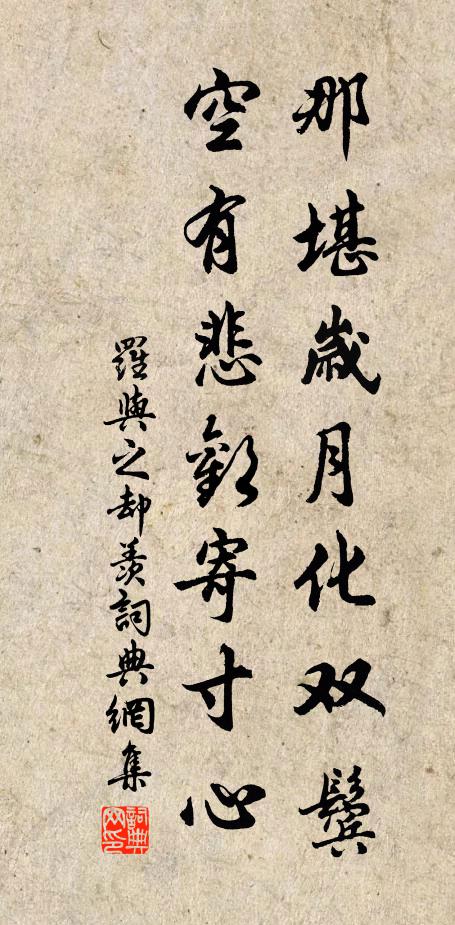 那堪歲月化双鬢
空有悲歡寄寸心
羅與之却羨詞典網集
詞典网印